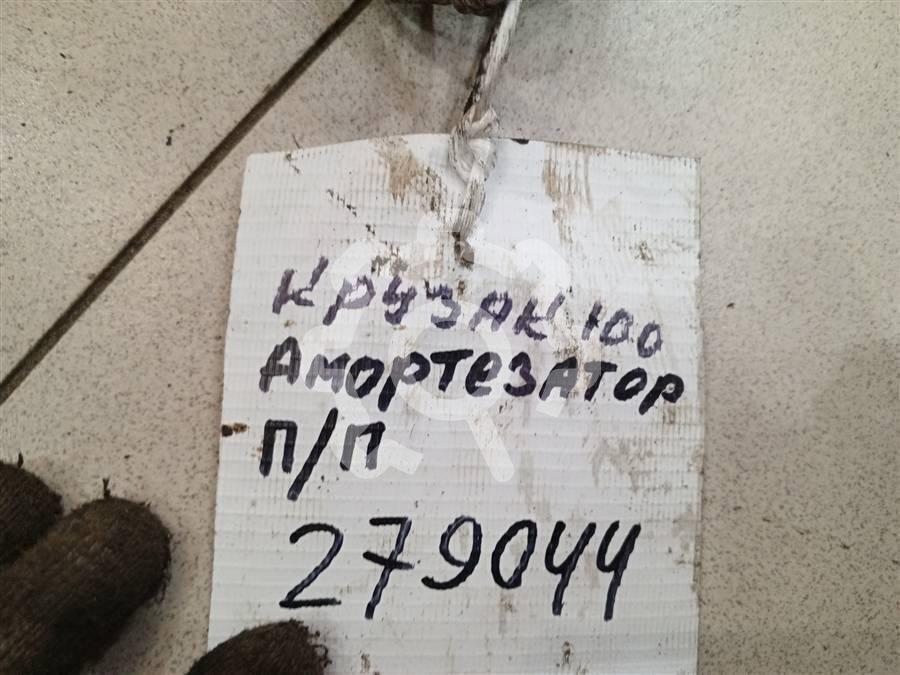 Крузак 100
Амортезатор
П/П
279044